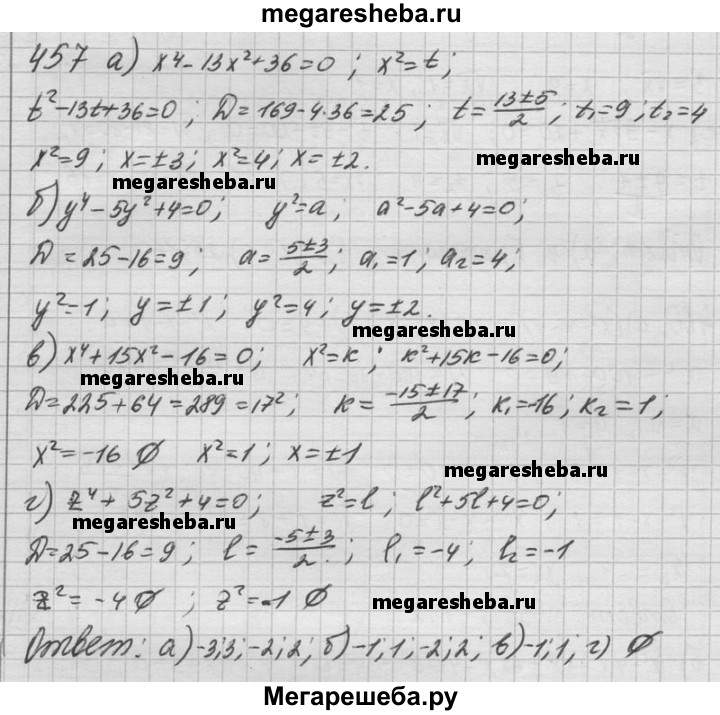 megaresheba.ru
457 а) x⁴-13x²+36=0 ; x²=t;
t²-13t+36=0 ; D=169-4·36=25 ; t=(13±5)/2 ; t₁=9 ; t₂=4
x²=9 ; x=±3 ; x²=4 ; x=±2.
megaresheba.ru
megaresheba.ru
б) y⁴-5y²+4=0; y²=a ; a²-5a+4=0 ;
D=25-16=9 ; a=(5±3)/2 ; a₁=1 ; a₂=4;
y²=1 ; y=±1 ; y²=4 ; y=±2.
megaresheba.ru
в) x⁴+15x²-16=0; x²=к ; к²+15к-16=0;
megaresheba.ru
D=225+64=289=17² ; к=(-15±17)/2 ; к₁=-16 ; к₂=1 ;
megaresheba.ru
x²=-16 ∅ x²=1 ; x=±1
г) z⁴+5z²+4=0; z²=l ; l²+5l+4=0;
megaresheba.ru
D=25-16=9 ; l=(-5±3)/2. ; l₁=-4 ; l₂=-1
z²=-4 ∅ ; z²=-1 ∅
megaresheba.ru
Ответ: а)-3;3;-2;2; б)-1;1;-2;2; в)-1;1; г) ∅
Мегарешеба.ру